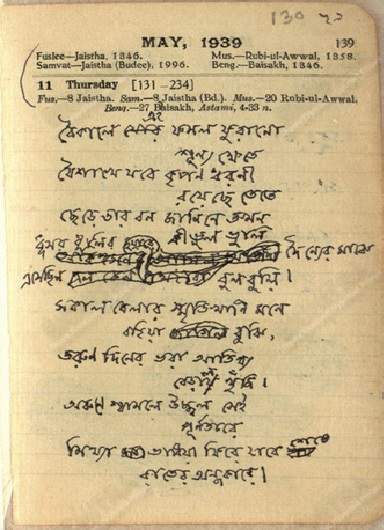 130 ২১
MAY, 1939 139
Fuslee—Jaistha, 1346. Mus.—Rubi-ul-Awwal, 1358.
Samvat—Jaistha (Budee). 1996. Beng.—Baisakh, 1346.
11 Thursday [131—234]
Fus.—8 Jaistha. Sam.—8 Jaistha (Bd.). Mus.—20 Rubi-ul-Awwal,
Beng.—27 Baisakh, Astami, 4-33 n.
এই
বৈকালে ফসল ফুরানো
শূন্য খেতে
বৈশাখে যবে কৃপণ ধরণী
রয়েছে তেতে
ছেড়ে তার বন জানিনে কখন
কী ভুল ভুলি
ধূসর ধূলির দৈন্যের মাঝে
এসেছিল বুলবুলি।
সকাল বেলার স্মৃতিখানি মনে
বহিয়া বুঝি,
তরুণ দিনের ভরা আতিথ্য
বেড়ায় খুঁজি।
অরুণে শ্যামলে উজ্জ্বল সেই
পূর্ণতারে
মিথ্যা ভাবিয়া ফিরে যাবে
রাতের অন্ধকারে।